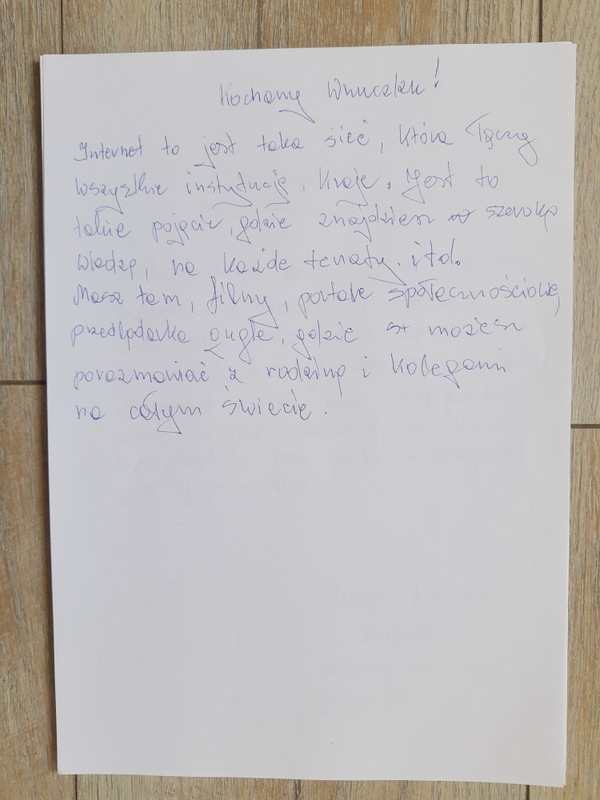 Kochany Wnuczek!
Internet to jest taka sieć, która łączy
wszystkie instytucję, kraje. Jest to
takie pojęcie, gdzie znajdziesz szeroką
wiedzę, na każde tematy. itd.
Masz tam, filmy, portale społecznościowe,
przeglądarka gugle, gdzie możesz
porozmawiać z rodziną i kolegami
na całym świecie.